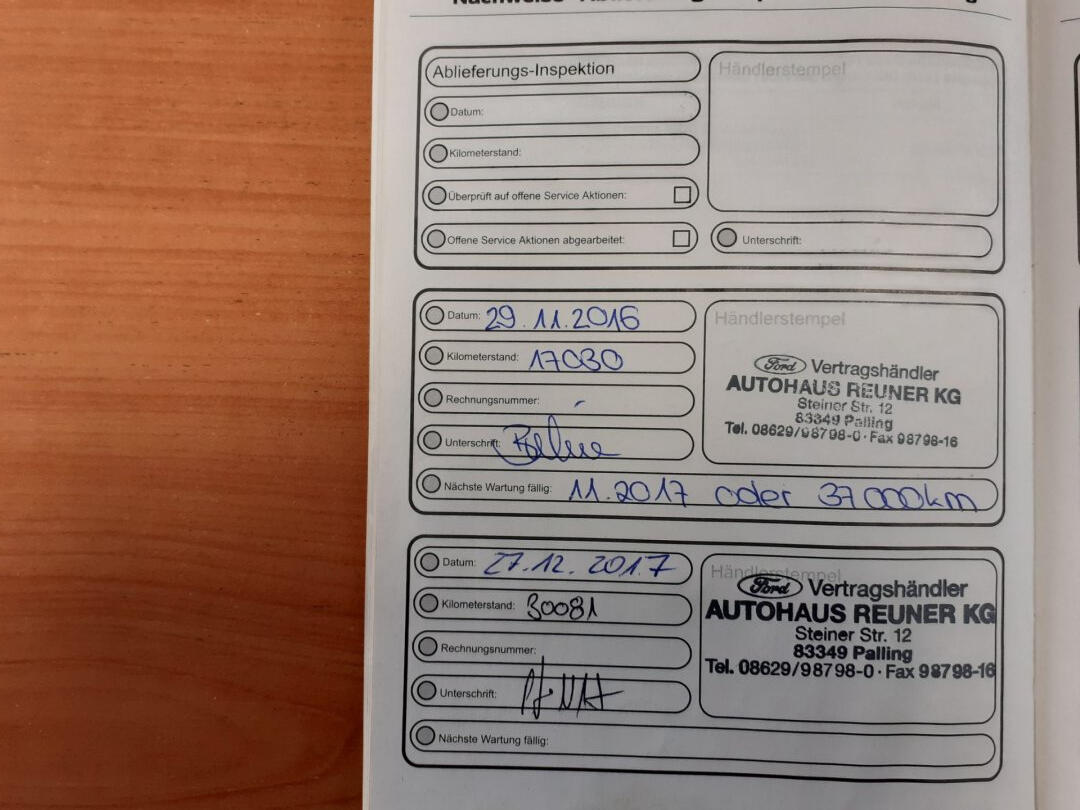 Ablieferungs-Inspektion
Händlerstempel
Datum:
Kilometerstand:
Überprüft auf offene Service Aktionen:
Offene Service Aktionen abgearbeitet:
Unterschrift:
Datum: 29.11.2016
Kilometerstand: 17030
Rechnungsnummer: -
Unterschrift:
Händlerstempel
Ford Vertragshändler
AUTOHAUS REUNER KG
Steiner Str. 12
83349 Palling
Tel. 08629/98798-0 · Fax 98798-16
Nächste Wartung fällig: 11.2017 oder 37000km
Datum: 27.12.2017
Kilometerstand: 30081
Rechnungsnummer:
Unterschrift:
Händlerstempel
Ford Vertragshändler
AUTOHAUS REUNER KG
Steiner Str. 12
83349 Palling
Tel. 08629/98798-0 · Fax 98798-16
Nächste Wartung fällig: